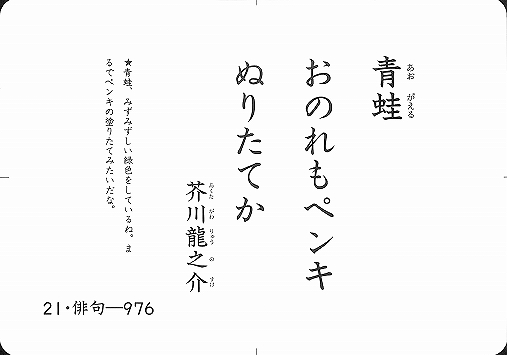 青蛙
あお がえる
おのれもペンキ
ぬりたてか
芥川龍之介
あくた がわ りゅう の すけ
★青蛙、みずみずしい緑色をしているね。ま
るでペンキの塗りたてみたいだな。
21・俳句―976